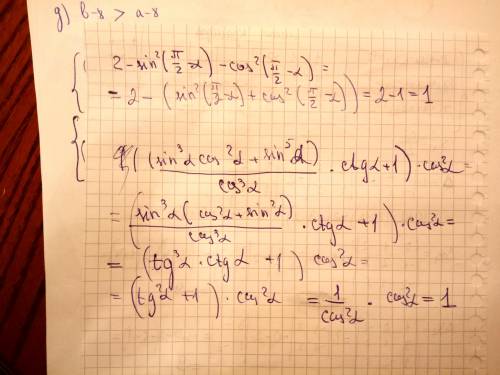 д) b-8 > a-8
2 - sin²(π/2 - α) - cos²(π/2 - α) =
= 2 - (sin²(π/2 - α) + cos²(π/2 - α)) = 2-1 = 1
((sin³α cos²α + sin⁵α)/cos³α · ctgα + 1) · cos²α =
= (sin³α(cos²α + sin²α)/cos³α · ctgα + 1) · cos²α =
= (tg³α · ctgα + 1) cos²α =
= (tg²α + 1) · cos²α = 1/cos²α · cos²α = 1